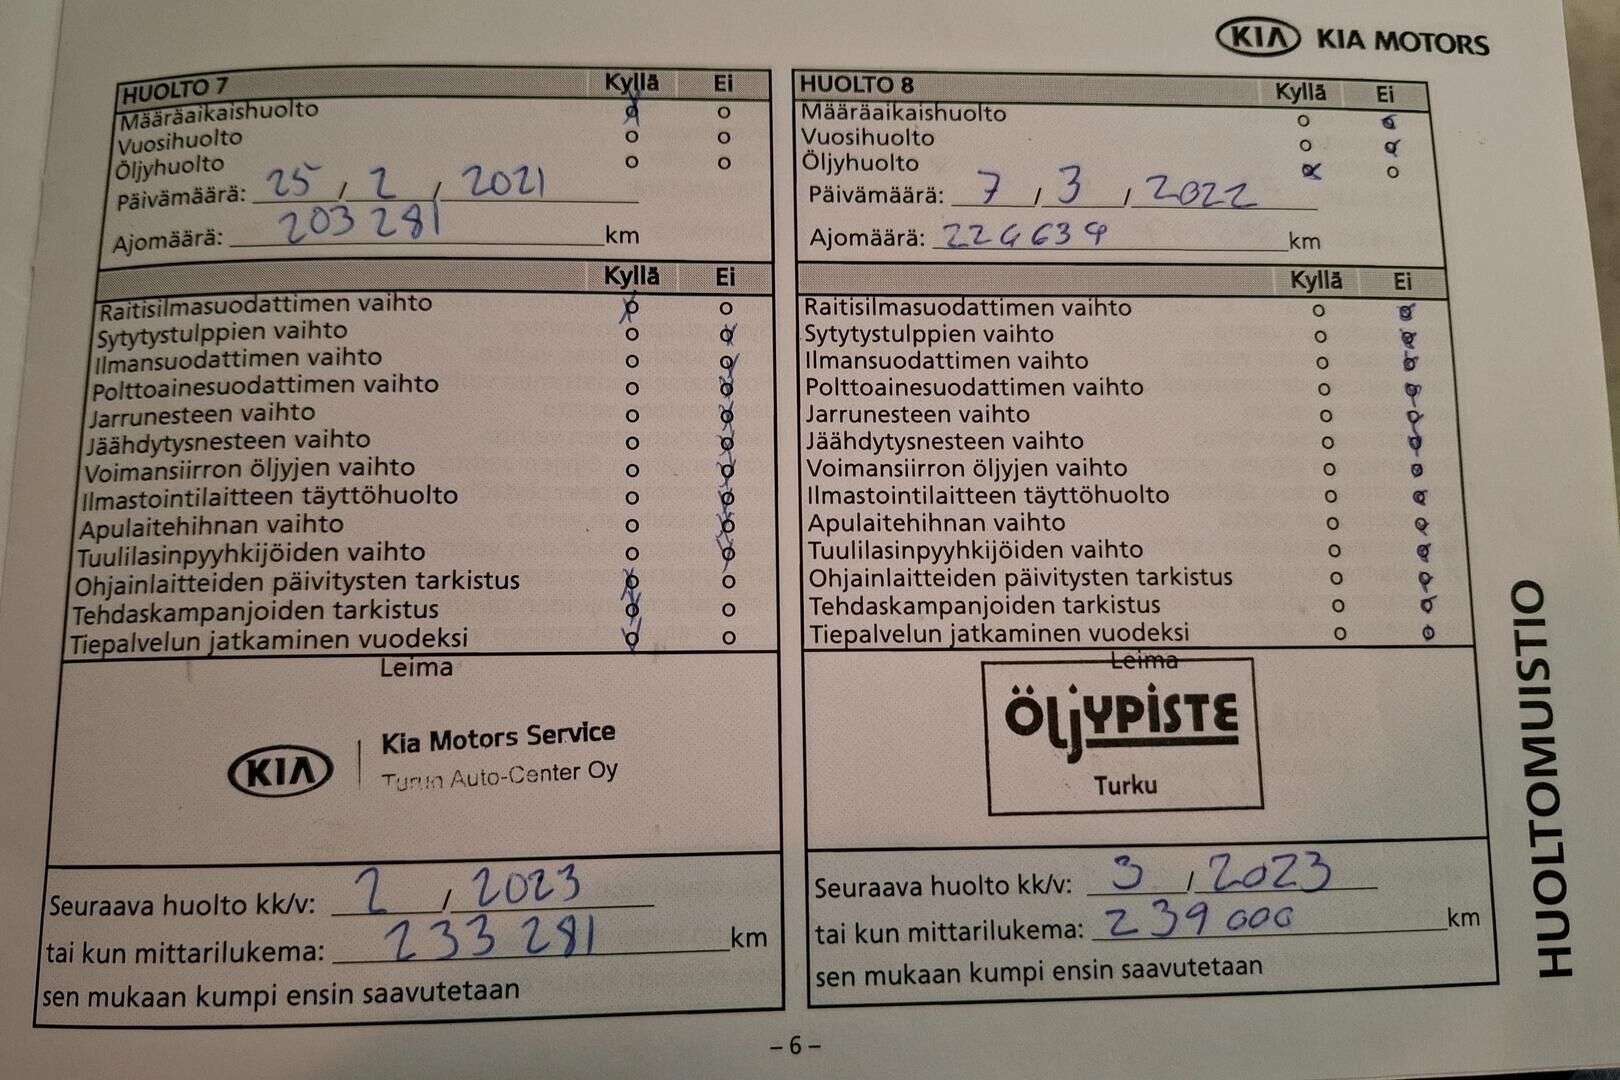 KIA KIA MOTORS
HUOLTO 7 Kyllä Ei
Määräaikaishuolto
Vuosihuolto
Öljyhuolto
Päivämäärä: 25 / 2 / 2021
Ajomäärä: 203 281 km
Kyllä Ei
Raitisilmasuodattimen vaihto
Sytytystulppien vaihto
Ilmansuodattimen vaihto
Polttoainesuodattimen vaihto
Jarrunesteen vaihto
Jäähdytysnesteen vaihto
Voimansiirron öljyjen vaihto
Ilmastointilaitteen täyttöhuolto
Apulaitehihnan vaihto
Tuulilasinpyyhkijöiden vaihto
Ohjainlaitteiden päivitysten tarkistus
Tehdaskampanjoiden tarkistus
Tiepalvelun jatkaminen vuodeksi
Leima
KIA Kia Motors Service
Turun Auto-Center Oy
Seuraava huolto kk/v: 2 / 2023
tai kun mittarilukema: 233 281 km
sen mukaan kumpi ensin saavutetaan
HUOLTO 8 Kyllä Ei
Määräaikaishuolto
Vuosihuolto
Öljyhuolto
Päivämäärä: 7 / 3 / 2022
Ajomäärä: 224639 km
Kyllä Ei
Raitisilmasuodattimen vaihto
Sytytystulppien vaihto
Ilmansuodattimen vaihto
Polttoainesuodattimen vaihto
Jarrunesteen vaihto
Jäähdytysnesteen vaihto
Voimansiirron öljyjen vaihto
Ilmastointilaitteen täyttöhuolto
Apulaitehihnan vaihto
Tuulilasinpyyhkijöiden vaihto
Ohjainlaitteiden päivitysten tarkistus
Tehdaskampanjoiden tarkistus
Tiepalvelun jatkaminen vuodeksi
Leima
ÖljYPiSTE
Turku
Seuraava huolto kk/v: 3 / 2023
tai kun mittarilukema: 239 000 km
sen mukaan kumpi ensin saavutetaan
HUOLTOMUISTIO
– 6 –